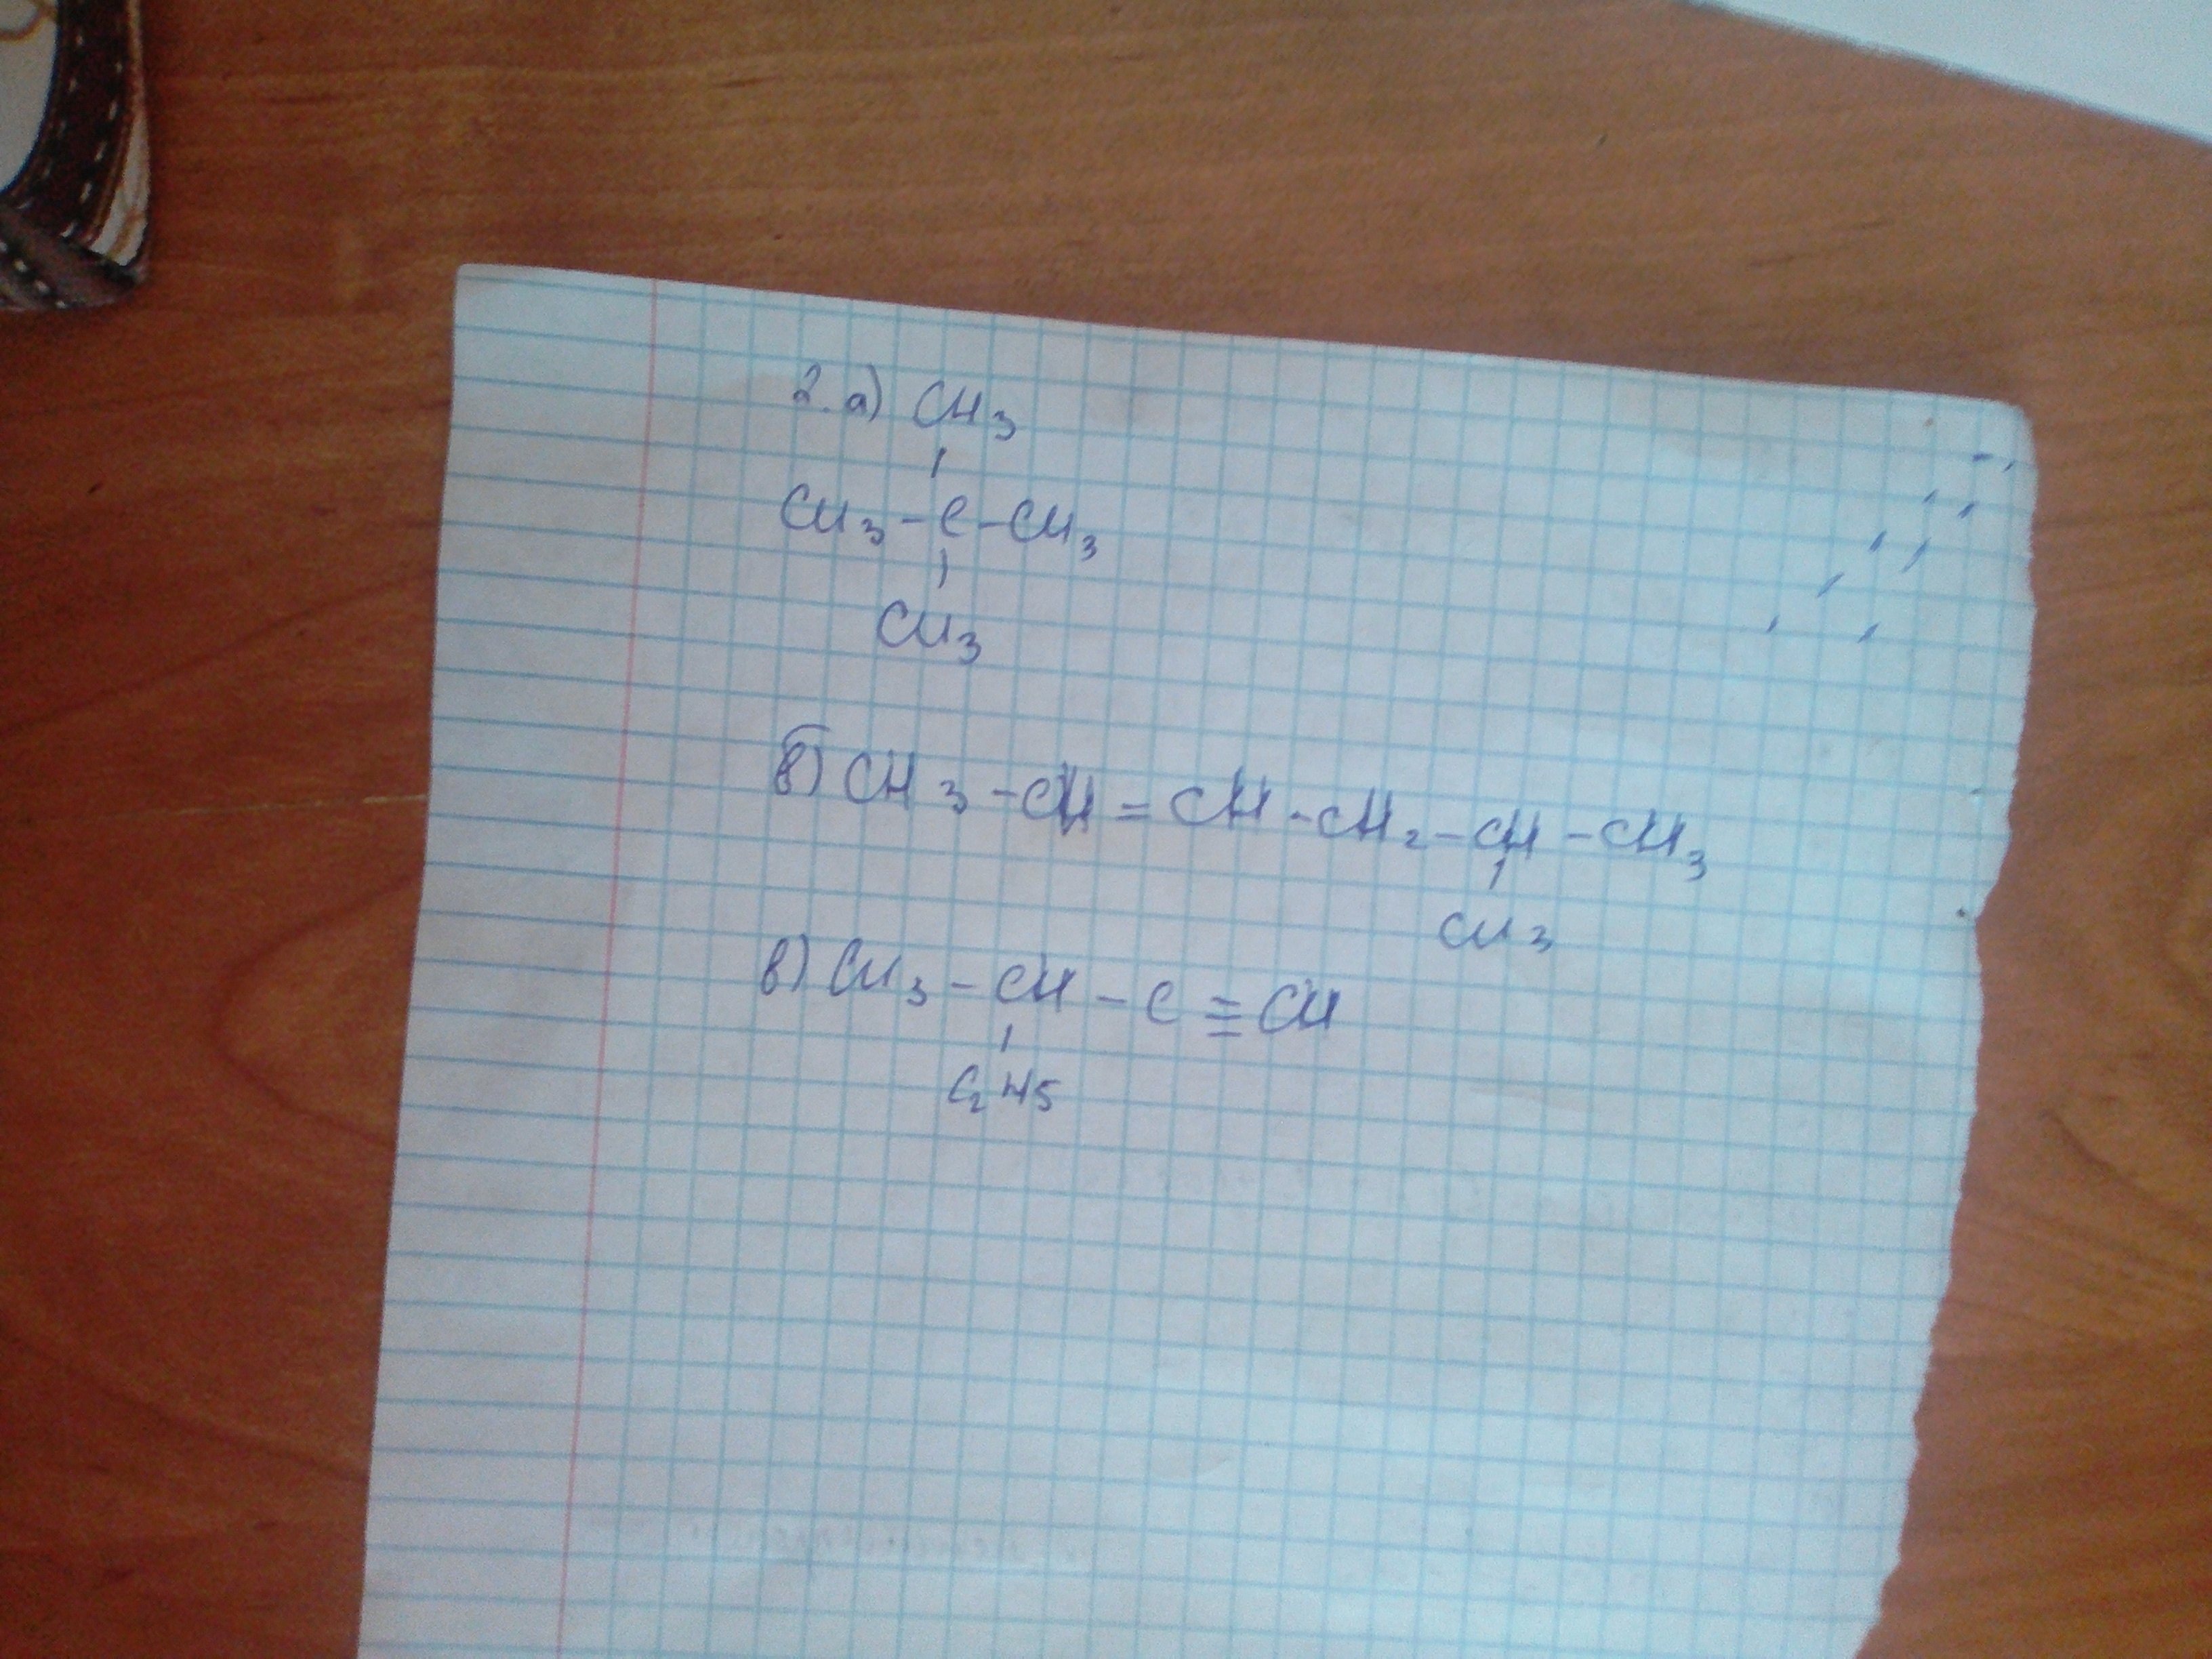 2. а) CH3
CH3 - C - CH3
CH3
б) CH3 - CH = CH - CH2 - CH - CH3
CH3
в) CH3 - CH - C ≡ CH
C2H5